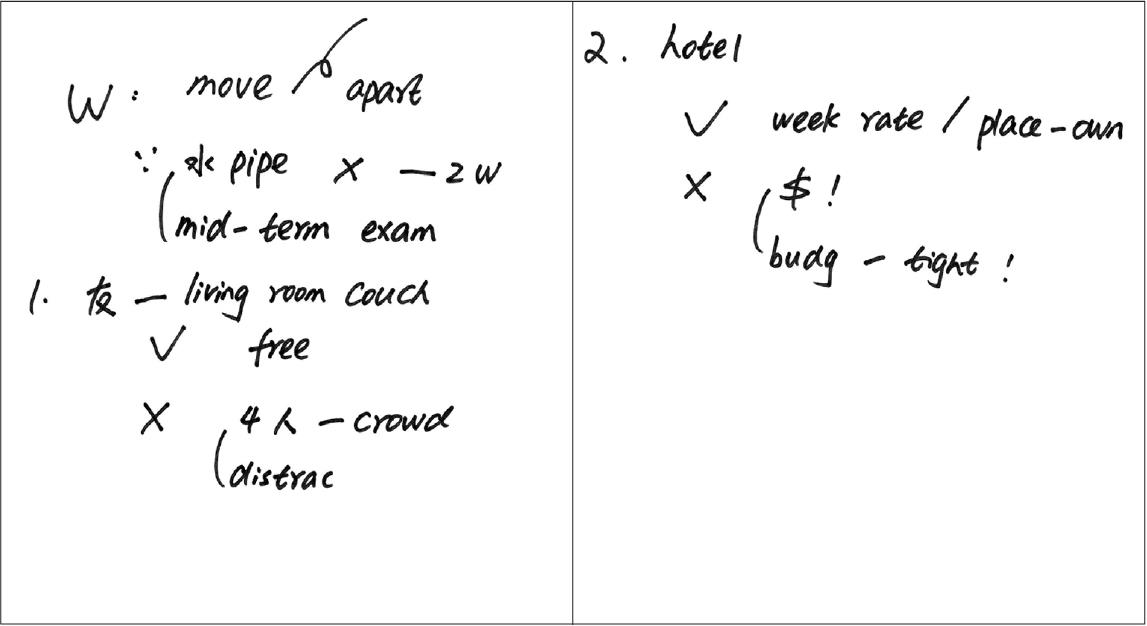 W: move apart
∵ 水 pipe × — 2 W
mid-term exam
1. 友 — living room couch
✓ free
× 4人 — crowd
distrac
2. hotel
✓ week rate / place-own
× $!
budg — tight!